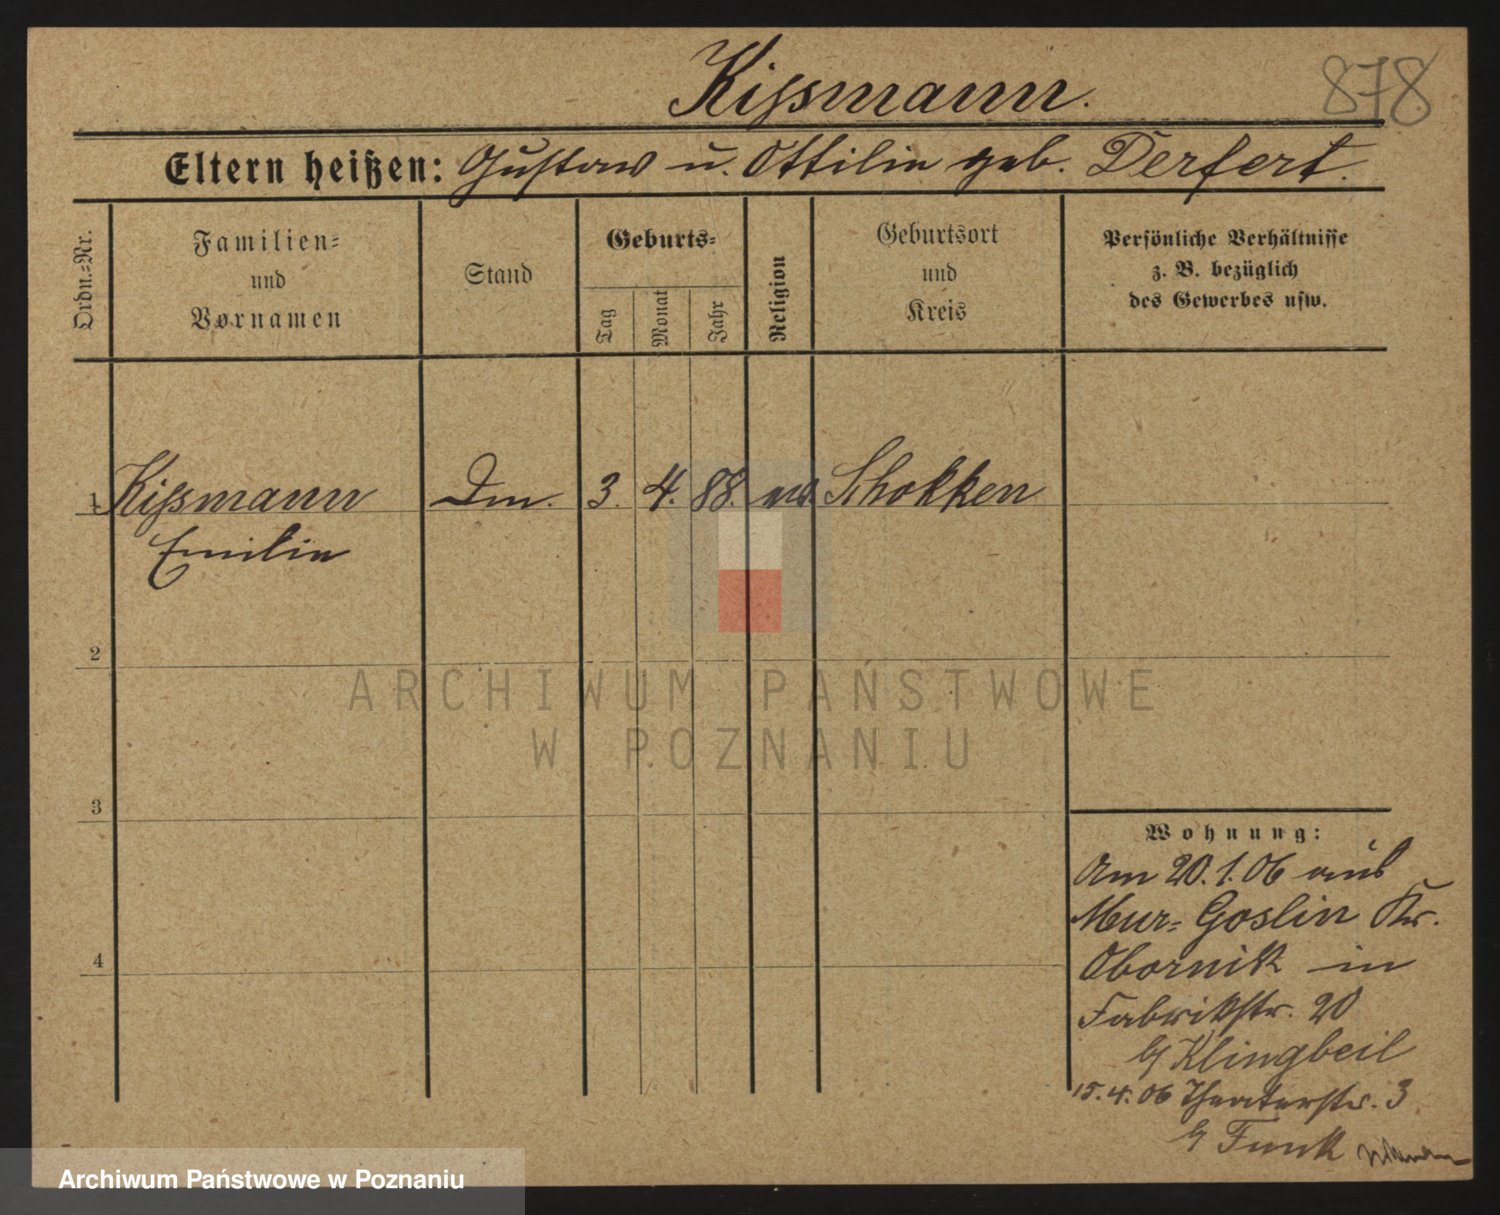 Kißmann.
878
Eltern heißen: Gustav u. Ottilie geb. Derfert.
Ordn.=Nr.
Familien=
und
Vornamen
Stand
Geburts=
Tag
Monat
Jahr
Religion
Geburtsort
und
Kreis
Persönliche Verhältnisse
z. B. bezüglich
des Gewerbes usw.
1 Kißmann 3. 4. 88. Schokken
Emilie
2
3
4
Wohnung:
Am 20.1.06 aus
Mur=Goslin Kr.
Obornik in
Fabrikstr. 20
b/ Klingbeil
15.4.06 Theaterstr. 3
b/ Funk
ARCHIWUM PAŃSTWOWE
W POZNANIU
Archiwum Państwowe w Poznaniu